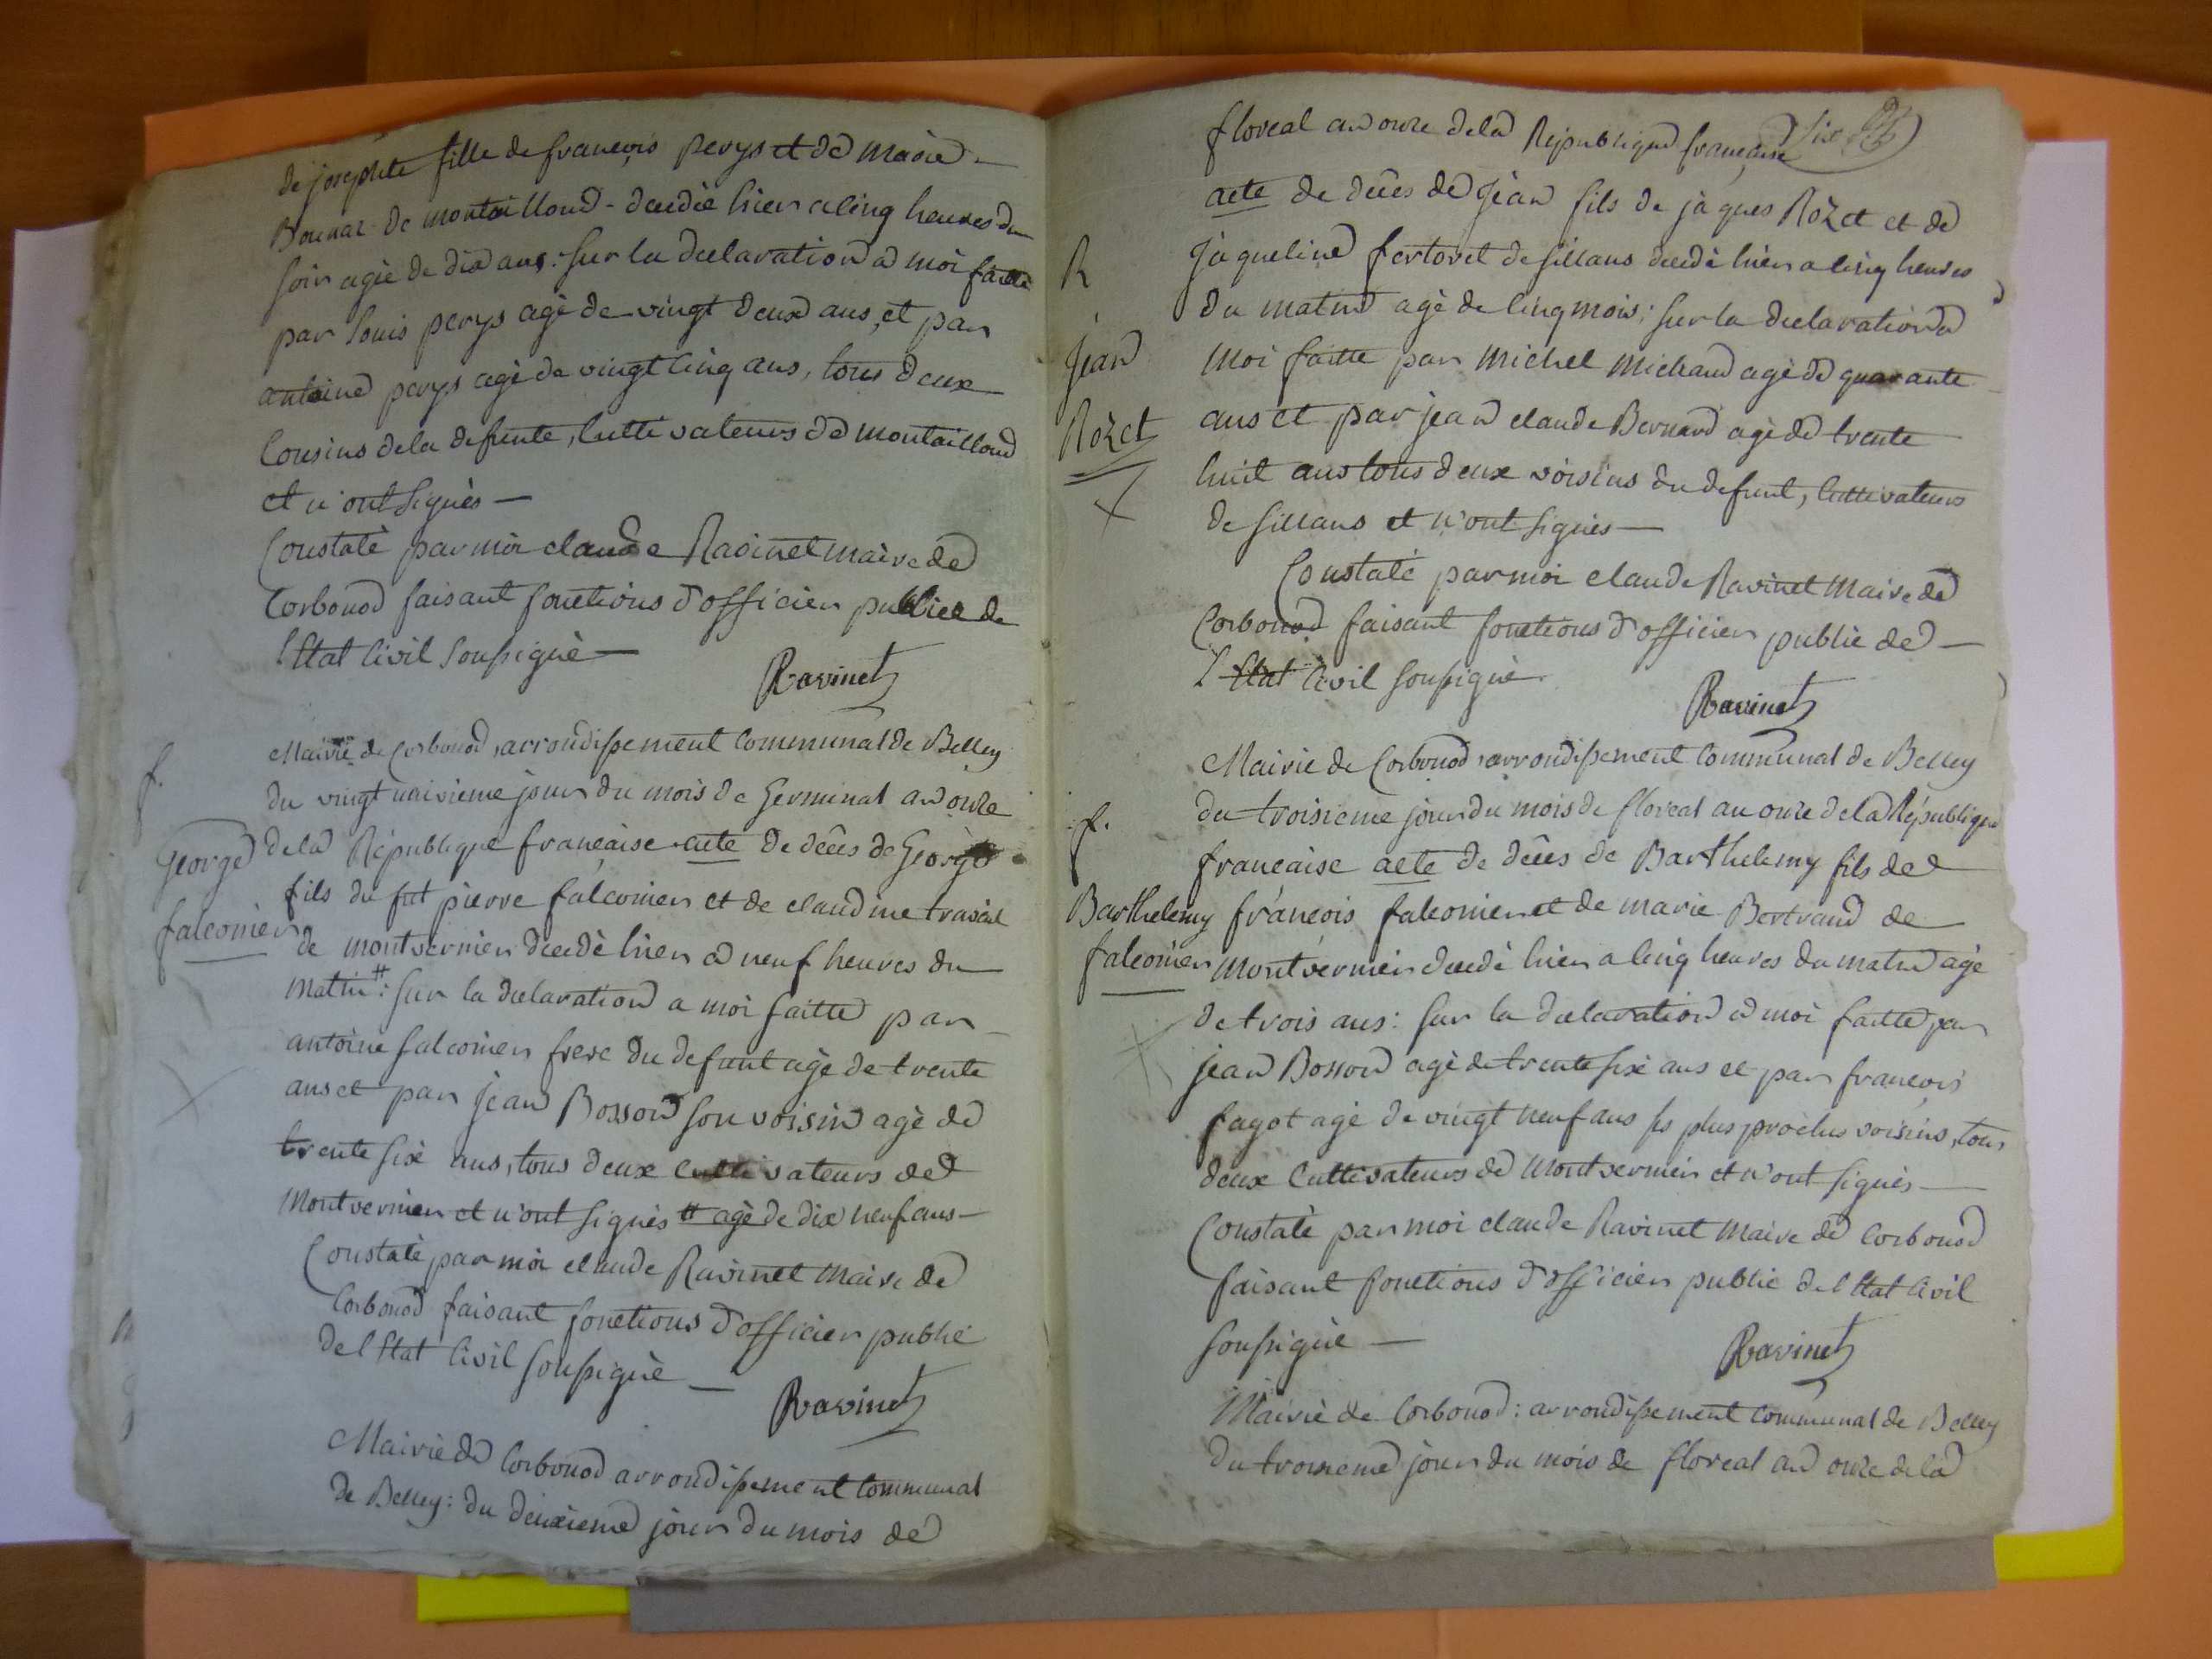 de josephte fille de francois perys et de marie
Bounaz de montailloud - decédée hier a cinq heures du
soir agée de dix ans : sur la declaration a moi faitte
par louis perys agé de vingt deux ans, et par
antoine perys agé de vingt cinq ans, tous deux
Cousins dela defunte, Cultivateurs de montailloud
et n'ont signés —
Constaté par moi claude Ravinet maire de
Corbonod faisant fonctions d'officier publice de
l'Etat Civil soussigné —
Ravinet
Mairie de Corbonod, arrondissement Communal de Belley
f.
du vingt naivieme jour du mois de Germinal an onze
George dela République francaise acte de décès de George
falconier fils du fut pierre falconier et de claudine travail
de montvernier decedé hier a neuf heures du
matin # : sur la declaration a moi faitte par
antoine falconier frere du defunt agé de trente
ans et par jean Bosson son voisin agé de
trente six ans, tous deux Cultivateurs de
Montvernier et n'ont signés # agé de dix neuf ans —
Constaté par moi claude Ravinet Maire de
Corbonod faisant fonctions d'officier public
de l'Etat Civil soussigné —
Ravinet
Mairie de Corbonod arrondissement Communal
de Belley : du deuxieme jour du mois de
six
floreal an onze dela République francaise
acte de décès de Jean fils de jaques Rozet et de
R
Jaqueline fertoret de sillans decedé hier a cinq heures
du matin agé de cinq mois ; sur la declaration a
Jean moi faitte par Michel Michaud agé de quarante
Rozet ans et par jean claude Bernard agé de trente
huit ans tous deux voisins du defunt, Cultivateurs
de sillans et n'ont signés —
Constaté par moi claude Ravinet Maire de
Corbonod faisant fonctions d'officier public de —
l'Etat Civil soussigné
Ravinet
Mairie de Corbonod, arrondissement Communal de Belley
f. du troisieme jour du mois de floreal an onze dela République
francaise acte de décès de Barthelemy fils de
Barthelemy francois falconier et de marie Bertrand de
falconier Montvernier decedé hier a cinq heures du matin agé
de trois ans : sur la declaration a moi faitte par
jean Bosson agé de trente six ans et par francois
fagot agé de vingt neuf ans ses plus proches voisins, tous
deux Cultivateurs de Montvernier et n'ont signés —
Constaté par moi claude Ravinet Maire de Corbonod
faisant fonctions d'officier public de l'Etat Civil
soussigné —
Ravinet
Mairie de Corbonod : arrondissement Communal de Belley
du troisieme jour du mois de floreal an onze dela